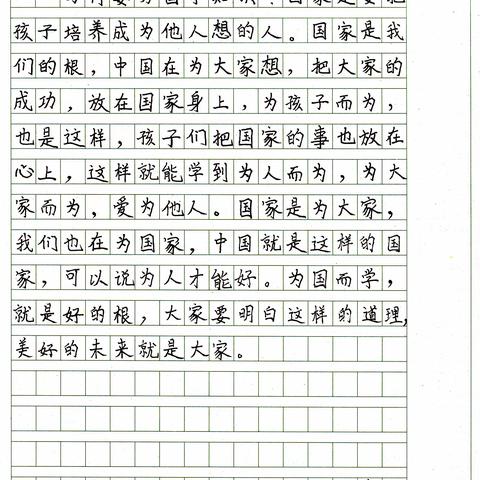 孩子培养成为他人想的人。国家是我
们的根，中国在为大家想，把大家的
成功，放在国家身上，为孩子而为，
也是这样，孩子们把国家的事也放在
心上，这样就能学到为人而为，为大
家而为，爱为他人。国家是为大家，
我们也在为国家，中国就是这样的国
家，可以说为人才能好。为国而学，
就是好的根，大家要明白这样的道理，
美好的未来就是大家。